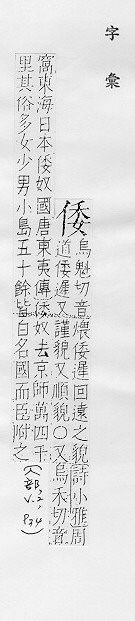 字彙
倭
烏魁切音煨倭遲回遠之貌詩小雅周
道倭遲又謹貌又順貌○又烏禾切音
窩東海日本倭奴國唐東夷傳倭奴去京師萬四千
里其俗多女少男小島五十餘皆自名國而臣附之
(人部